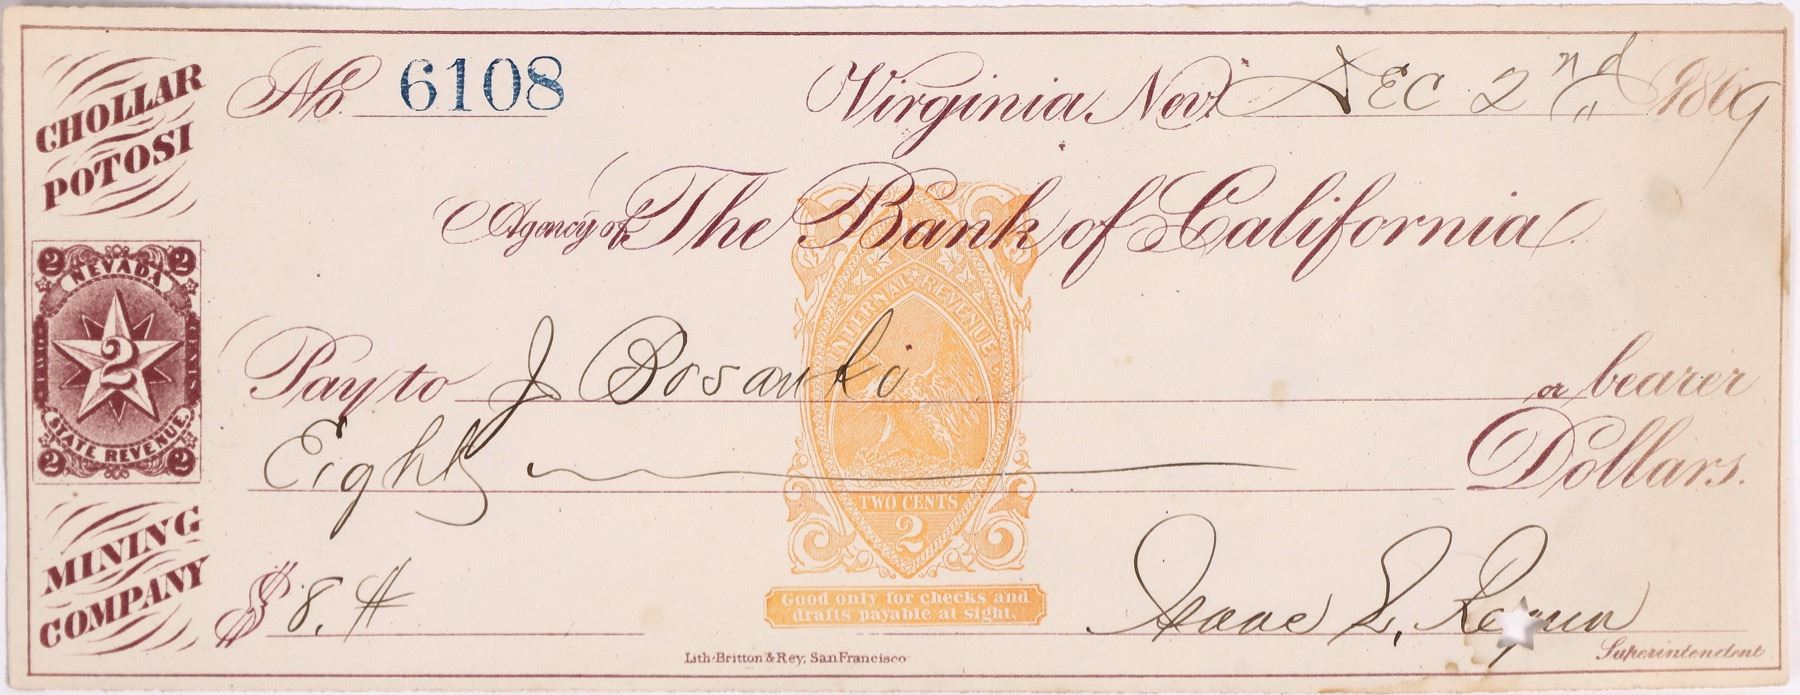 CHOLLAR
POTOSI
No. 6108
Virginia, Nev. DEC 2nd 1869
Agency of The Bank of California
2 NEVADA 2
2
TWO CENTS
STATE REVENUE.
2 2
INTERNAL REVENUE
Pay to J Bosanki or bearer
Eight Dollars.
TWO CENTS
2
Good only for checks and
drafts payable at sight.
MINING
COMPANY
$ 8.#
Isaac L. Requa
Superintendent
Lith. Britton & Rey, San Francisco